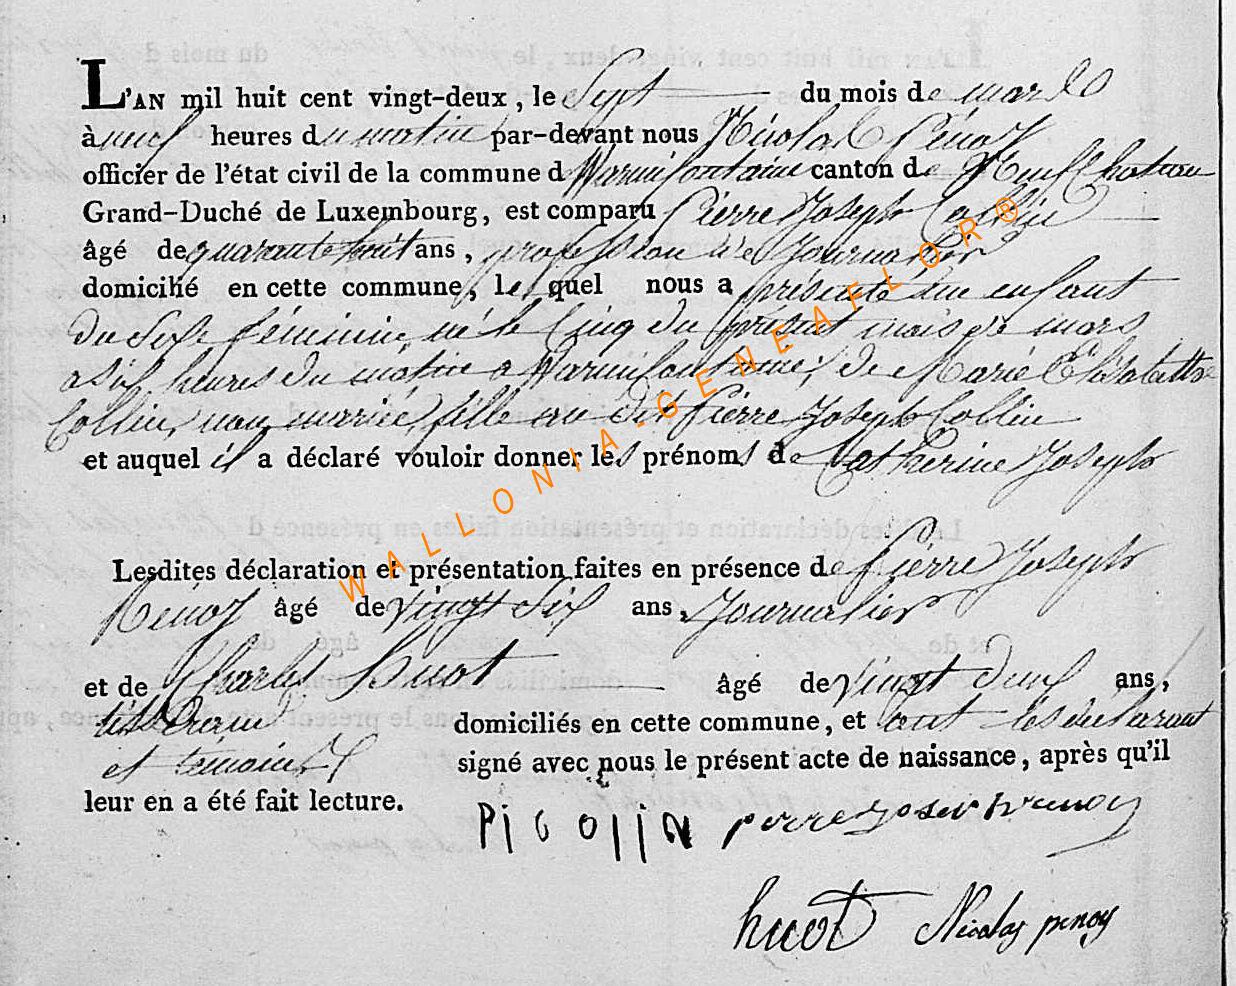 L'AN mil huit cent vingt-deux, le Sept du mois de mars
à neuf heures du matin par-devant nous Nicolas Pénoy
officier de l'état civil de la commune de Warmifontaine canton de Neufchateau
Grand-Duché de Luxembourg, est comparu Pierre Joseph Collin
âgé de quarante huit ans, profession de Journalier
domicilié en cette commune, lequel nous a présenté une enfant
du Sexe féminin, né le Cinq du présent mois de mars
a Six heures du matin a Warmifontaine, de Marie Elisabethe
Collin, non marriée, fille au dit Pierre Joseph Collin
et auquel il a déclaré vouloir donner les prénoms de Catherine Joseph
Lesdites déclaration et présentation faites en présence de Pierre Joseph
Renoy âgé de vingt Six ans, Journalier
et de Charles huot âgé de vingt deux ans,
domiciliés en cette commune, et ont les déclarant
et témoins signé avec nous le présent acte de naissance, après qu'il
leur en a été fait lecture.
Pi Collin
huot Nicolas penoy
WALLONIA-GENEAFLOR®